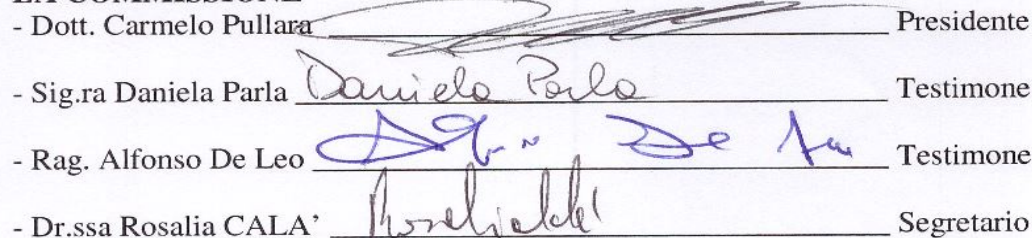 LA COMMISSIONE
- Dott. Carmelo Pullara Presidente
- Sig.ra Daniela Parla Daniela Parla Testimone
- Rag. Alfonso De Leo De Testimone
- Dr.ssa Rosalia CALA’ Segretario